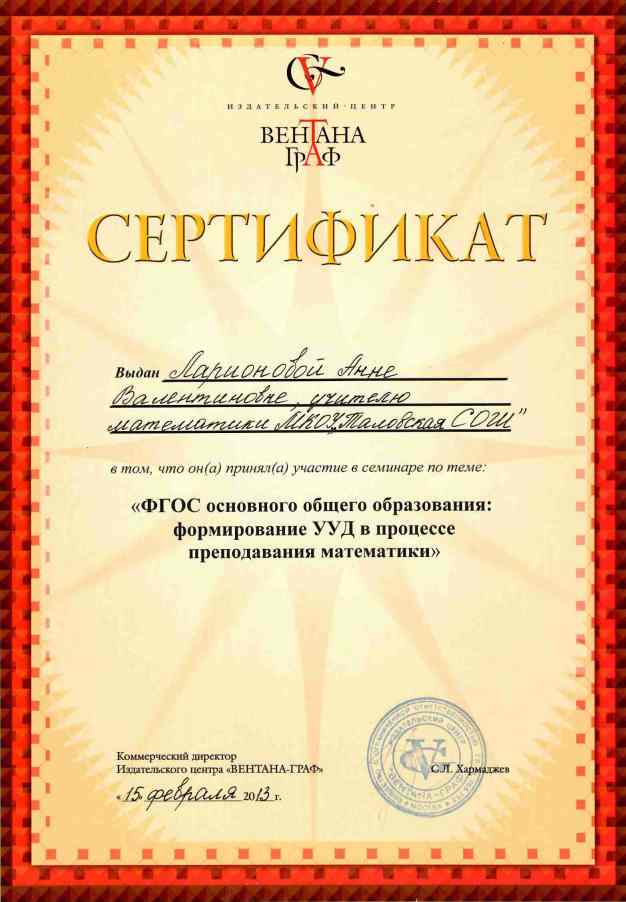 ИЗДАТЕЛЬСКИЙ · ЦЕНТР
ВЕНТАНА
ГРАФ
СЕРТИФИКАТ
Выдан Ларионовой Анне
Валентиновне, учителю
математики МКОУ „Таловская СОШ"
в том, что он(а) принял(а) участие в семинаре по теме:
«ФГОС основного общего образования:
формирование УУД в процессе
преподавания математики»
Коммерческий директор
Издательского центра «ВЕНТАНА-ГРАФ»
С.Л. Хармаджев
«15» февраля 2013 г.
ИЗДАТЕЛЬСКИЙ ЦЕНТР
"ВЕНТАНА-ГРАФ"
МОСКВА